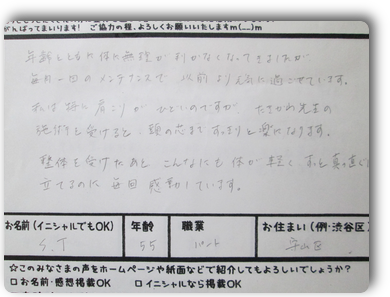 がんばってまいります! ご協力の程、よろしくお願いいたしますm(__)m
年齢とともに体に無理がきかなくなってきましたが
毎月一回のメンテナンスで 以前より元気に過ごせています。
私は特に肩こりが ひどいのですが 先生の
施術を受けると 頭の芯まですっきりと楽になります。
整体を受けたあと こんなにも体が軽く、すっと真っ直ぐに
立てるのに毎回感動しています。
お名前(イニシャルでもOK) 年齢 職業 お住まい(例・渋谷区)
S.T 55 パート
☆このみなさまの声をホームページや紙面などで紹介してもよろしいでしょうか?
□お名前・感想掲載OK □イニシャルなら掲載OK